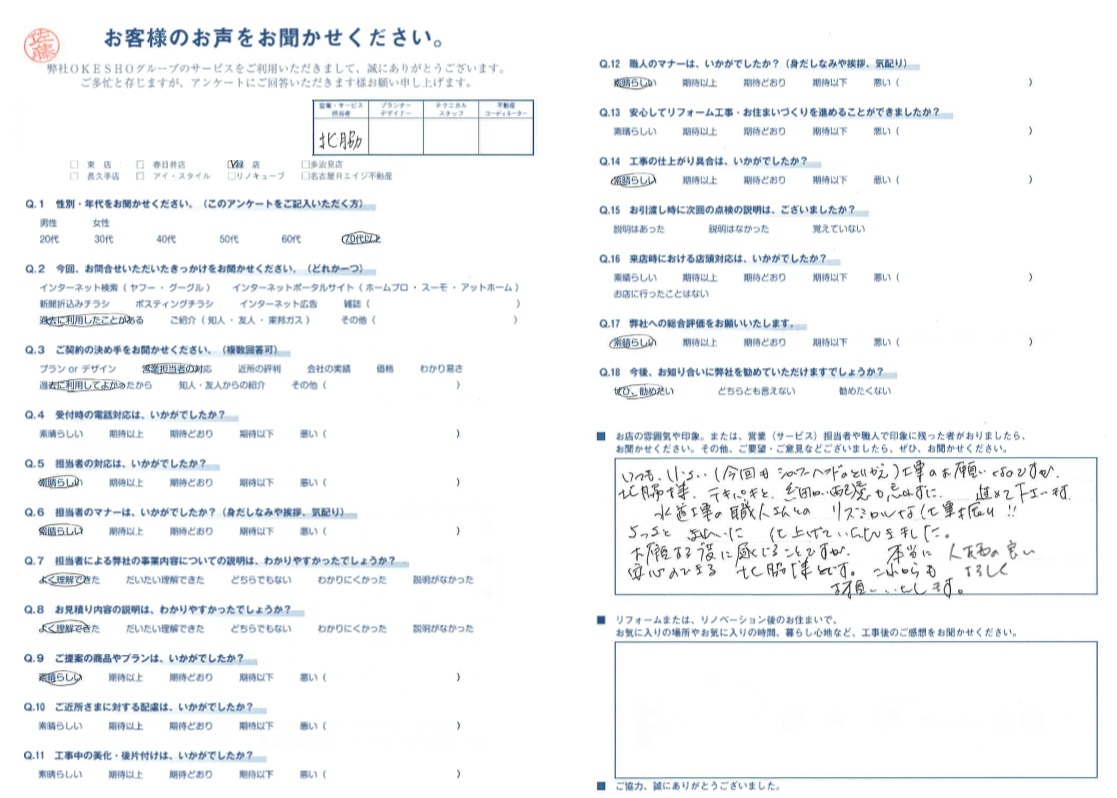 佐藤
お客様のお声をお聞かせください。
弊社OKESHOグループのサービスをご利用いただきまして、誠にありがとうございます。
ご多忙と存じますが、アンケートにご回答いただきます様お願い申し上げます。
営業・サービス担当者 プランナーデザイナー テクニカルスタッフ 不動産コーディネーター
北脇
□ 東 店 □ 春日井店 緑 店 □多治見店
□ 長久手店 □ アイ・スタイル □リノキューブ □名古屋Rエイジ不動産
Q.1 性別・年代をお聞かせください。(このアンケートをご記入いただく方)
男性 女性
20代 30代 40代 50代 60代 70代以上
Q.2 今回、お問合せいただいたきっかけをお聞かせください。(どれか一つ)
インターネット検索(ヤフー・グーグル) インターネットポータルサイト(ホームプロ・スーモ・アットホーム)
新聞折込みチラシ ポスティングチラシ インターネット広告 雑誌( )
過去に利用したことがある ご紹介(知人・友人・東邦ガス) その他( )
Q.3 ご契約の決め手をお聞かせください。(複数回答可)
プラン or デザイン 営業担当者の対応 近所の評判 会社の実績 価格 わかり易さ
過去に利用してよかったから 知人・友人からの紹介 その他( )
Q.4 受付時の電話対応は、いかがでしたか?
素晴らしい 期待以上 期待どおり 期待以下 悪い( )
Q.5 担当者の対応は、いかがでしたか?
素晴らしい 期待以上 期待どおり 期待以下 悪い( )
Q.6 担当者のマナーは、いかがでしたか?(身だしなみや挨拶、気配り)
素晴らしい 期待以上 期待どおり 期待以下 悪い( )
Q.7 担当者による弊社の事業内容についての説明は、わかりやすかったでしょうか?
よく理解できた だいたい理解できた どちらでもない わかりにくかった 説明がなかった
Q.8 お見積り内容の説明は、わかりやすかったでしょうか?
よく理解できた だいたい理解できた どちらでもない わかりにくかった 説明がなかった
Q.9 ご提案の商品やプランは、いかがでしたか?
素晴らしい 期待以上 期待どおり 期待以下 悪い( )
Q.10 ご近所さまに対する配慮は、いかがでしたか?
素晴らしい 期待以上 期待どおり 期待以下 悪い( )
Q.11 工事中の美化・後片付けは、いかがでしたか?
素晴らしい 期待以上 期待どおり 期待以下 悪い( )
Q.12 職人のマナーは、いかがでしたか?(身だしなみや挨拶、気配り)
素晴らしい 期待以上 期待どおり 期待以下 悪い( )
Q.13 安心してリフォーム工事・お住まいづくりを進めることができましたか?
素晴らしい 期待以上 期待どおり 期待以下 悪い( )
Q.14 工事の仕上がり具合は、いかがでしたか?
素晴らしい 期待以上 期待どおり 期待以下 悪い( )
Q.15 お引渡し時に次回の点検の説明は、ございましたか?
説明はあった 説明はなかった 覚えていない
Q.16 来店時における店頭対応は、いかがでしたか?
素晴らしい 期待以上 期待どおり 期待以下 悪い( )
お店に行ったことはない
Q.17 弊社への総合評価をお願いいたします。
素晴らしい 期待以上 期待どおり 期待以下 悪い( )
Q.18 今後、お知り合いに弊社を勧めていただけますでしょうか?
ぜひ、勧めたい どちらとも言えない 勧めたくない
■ お店の雰囲気や印象。または、営業(サービス)担当者や職人で印象に残った者がおりましたら、
お聞かせください。その他、ご要望・ご意見などございましたら、ぜひ、お聞かせください。
いつも、小さい(今回もシャワーヘッドのとりかえ)工事のお願いなのですが、
北脇様、テキパキと、細かい配慮も忘れずに、進めて下さいます
水道工事の職人さんの リズミカルな仕事振り!!
さっさと きれいに 仕上げていただきました。
お願いする度に感じることですが、 本当に 人柄の良い
安心のできる 北脇様です。これからも よろしく
お願いいたします。
■ リフォームまたは、リノベーション後のお住まいで、
お気に入りの場所やお気に入りの時間、暮らし心地など、工事後のご感想をお聞かせください。
■ ご協力、誠にありがとうございました。